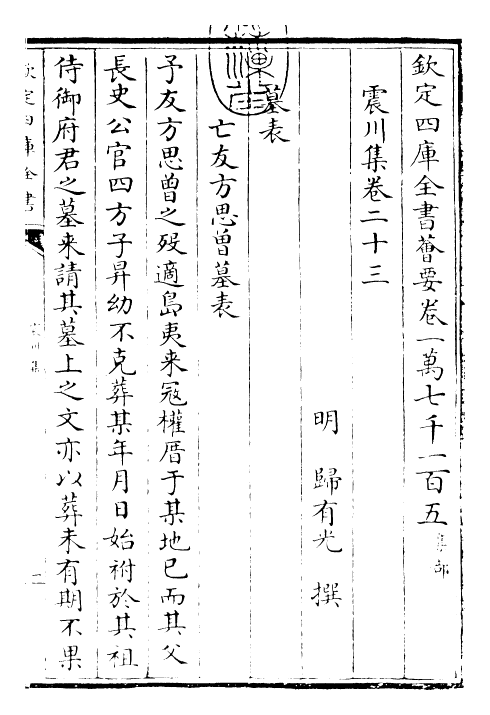 欽定四庫全書薈要卷一萬七千一百五集部
震川集卷二十三
明 歸有光 撰
墓表
亡友方思曾墓表
予友方思曾之歿適島夷来冦權厝于某地已而其父
長史公官四方子昇幼不克葬某年月日始祔於其祖
侍御府君之墓来請其墓上之文亦以葬未有期不果
欽定四庫全書
震川集